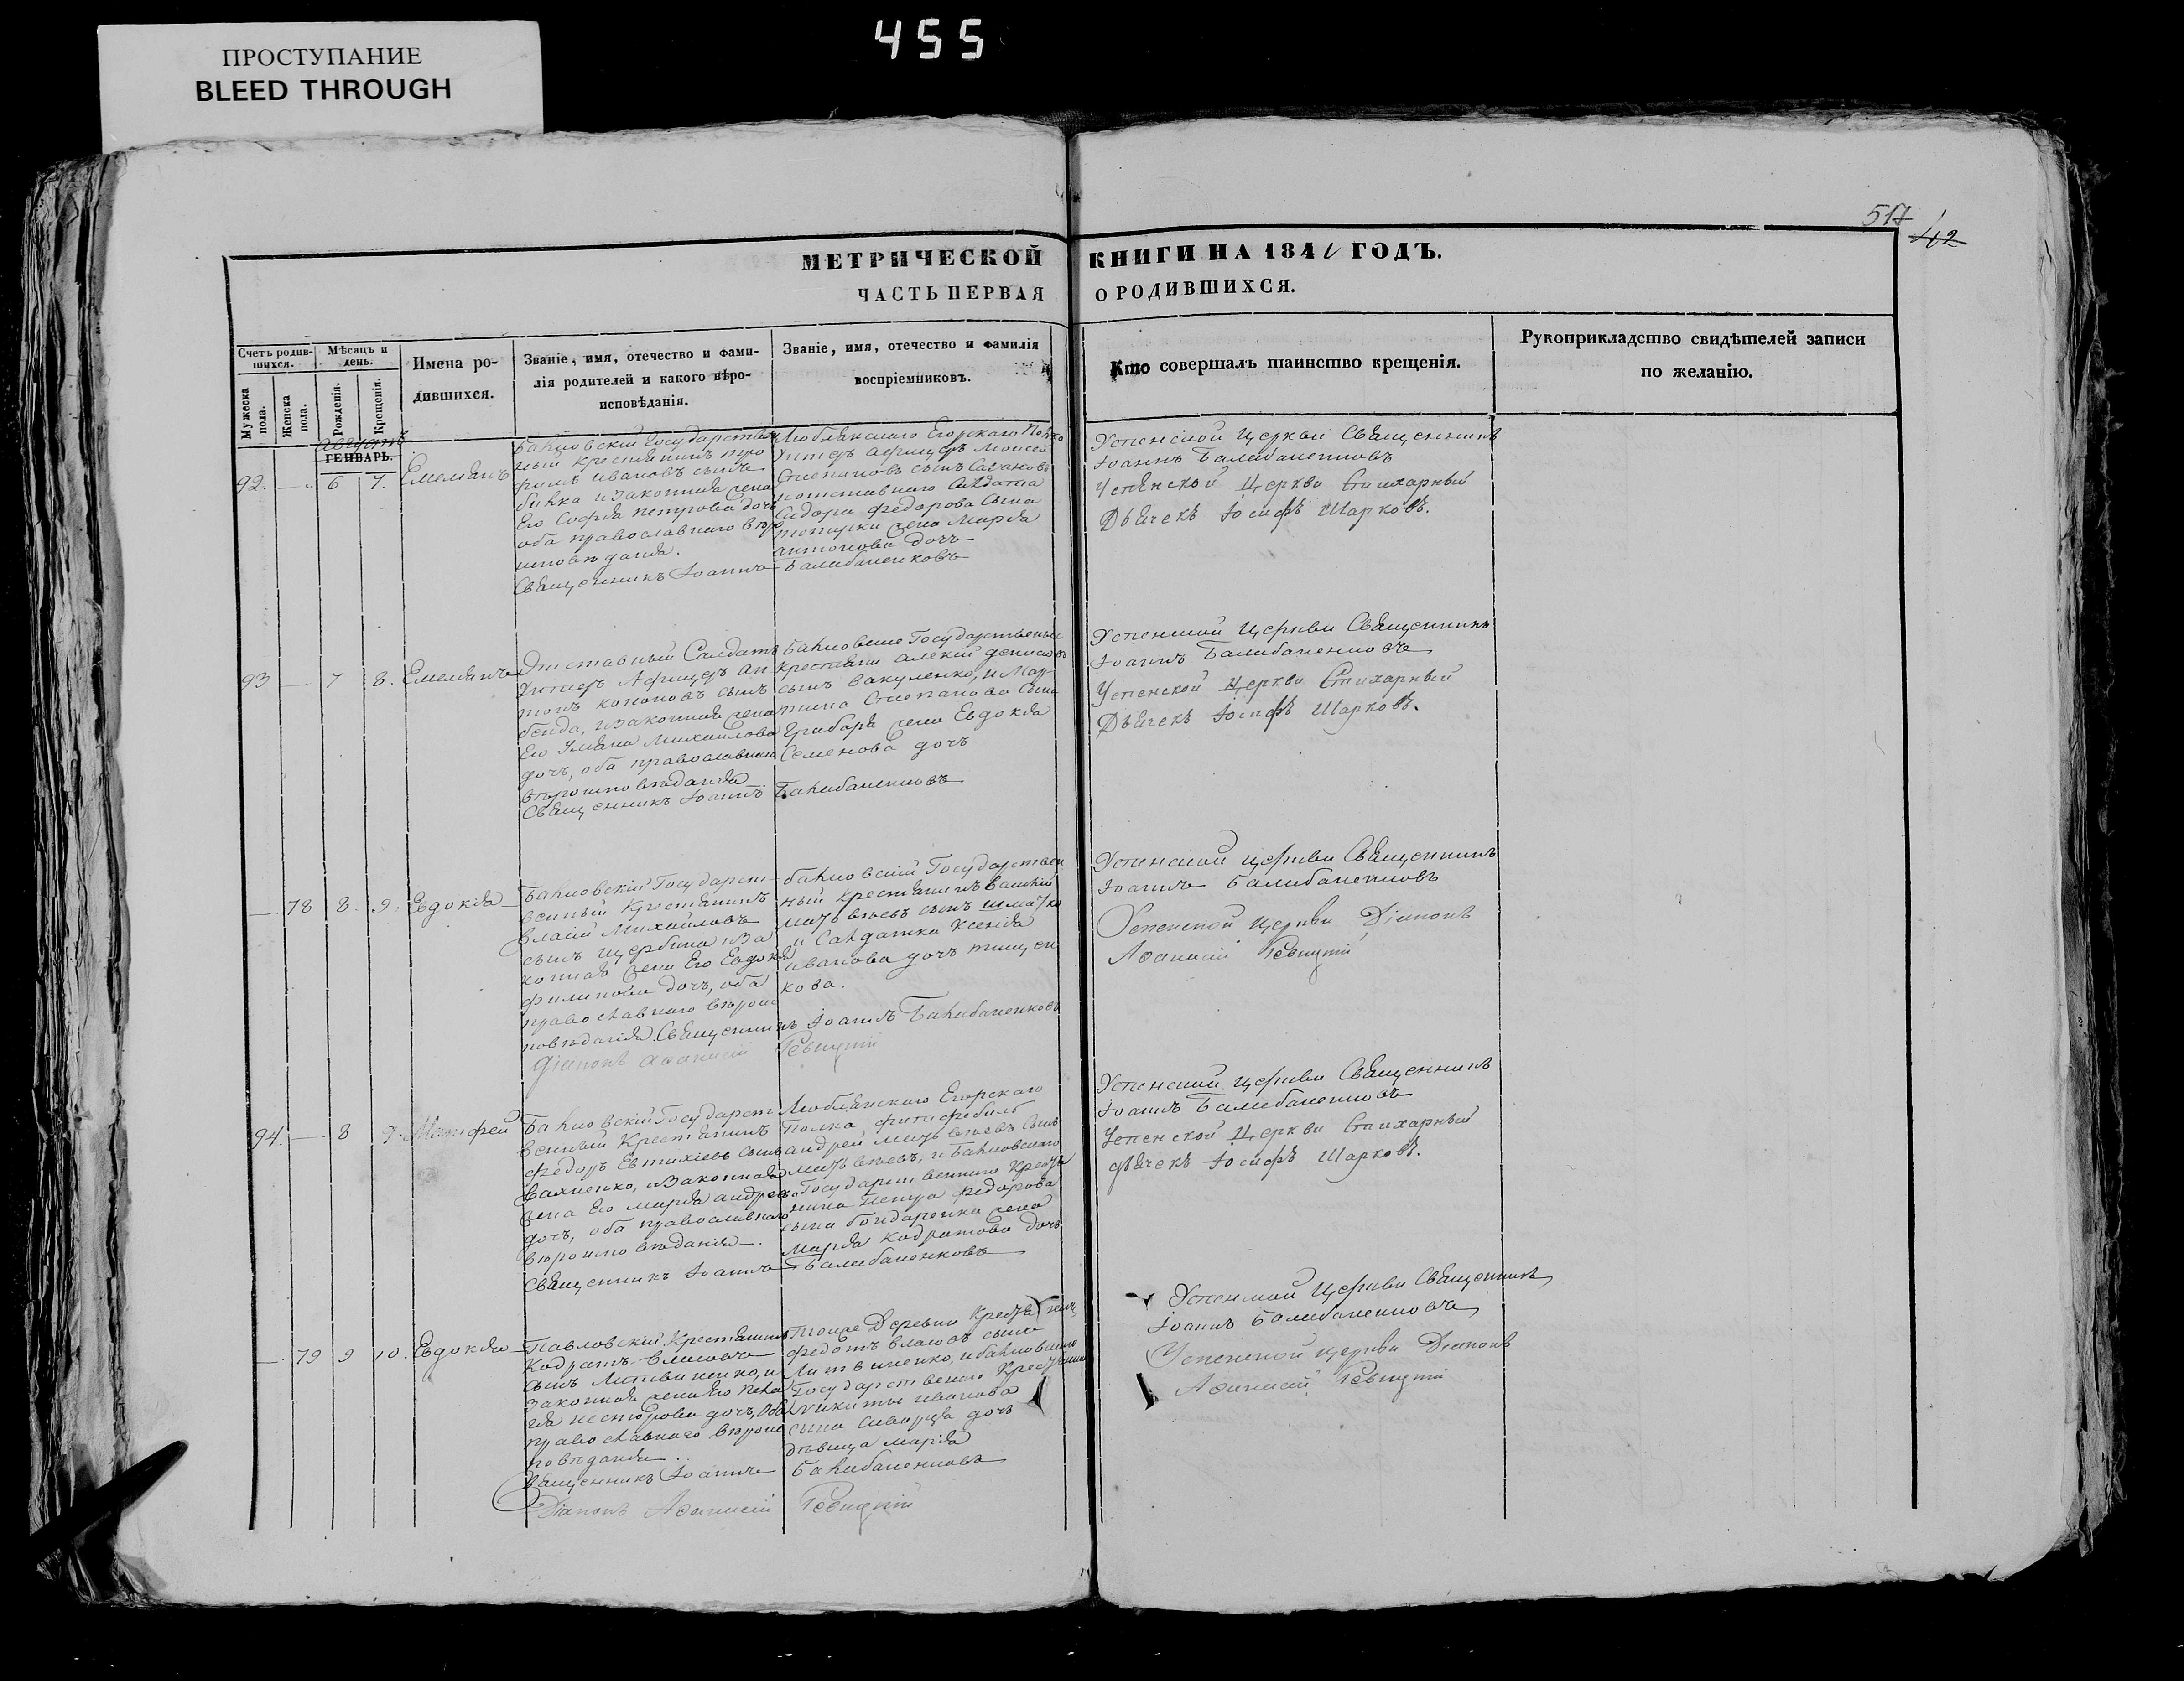 ПРОСТУПАНИЕ
BLEED THROUGH
455
517
112
МЕТРИЧЕСКОЙ КНИГИ НА 1841 ГОДЪ.
ЧАСТЬ ПЕРВАЯ О РОДИВШИХСЯ.
Счетъ родив-
шихся.
Мужеска пола.
Женска пола.
Мѣсяцъ и
день.
Рожденія.
Крещенія.
Имена ро-
дившихся.
Званіе, имя, отечество и фами-
лія родителей и какого вѣро-
исповѣданія.
Званіе, имя, отечество и фамилія
воспріемниковъ.
Кто совершалъ таинство крещенія.
Рукоприкладство свидѣтелей записи
по желанію.
Августъ
ГЕНВАРЬ.
92. — 6 7. Емелянъ
Государствен
ный Крестянинъ тро
фимъ Ивановъ сынъ
и законная жена
Его Софія петрова дочь
оба православнаго вѣро
исповѣданія.
Священникъ Іоаннъ Балабаненковъ
Егорскаго Полка
Унтеръ Афицеръ Моисей
Степановъ сынъ
Салдата
Сидора Федорова Сына
жена Марія
антонова дочь
Успенской Церкви Священникъ
Іоаннъ Балабаненковъ
Успенской Церкви Стихарный
Дьячекъ Іосифъ Шарковъ.
93 — 7 8. Емелянъ
Отставный Салдатъ
Унтеръ Афицеръ Ан
тонъ кононовъ сынъ
бенда, и законная жена
Его Уляна Михаилова
дочь, оба православнаго
вѣроисповѣданія
Священникъ Іоаннъ Балабаненковъ
Государственные
Крестяни алексій денисовъ
сынъ вакуленко, и Мар
тина Степанова Сына
Грибаря жена Евдокія
Семенова дочь
Успенской Церкви Священникъ
Іоаннъ Балабаненковъ
Успенской Церкви Стихарный
Дьячекъ Іосифъ Шарковъ.
— 78 8. 9. Евдокія
Государст
венный Крестянинъ
власій Михайловъ
сынъ щербина и за
конная жена Его Евдокія
филипова дочь, оба
православнаго вѣроис
повѣданія. Священникъ Іоаннъ Балабаненковъ
Діаконъ Афанасій
Государствен
ный Крестянинъ василій
матвѣевъ сынъ шматко
и Салдатка Ксенія
иванова дочь тищен
кова.
Успенской церкви Священникъ
Іоаннъ Балабаненковъ
Успенской церкви Діаконъ
Афанасій
94. — 8 9.
Государст
венный Крестянинъ
Федоръ Евтихіевъ сынъ
вахненко, и законная
жена Его марія андреева
дочь, оба православнаго
вѣроисповѣданія.
Священникъ Іоаннъ Балабаненковъ
Егорскаго
Полка,
андрей матвѣевъ Сынъ
матвѣевъ, и
Государственнаго Крестя
нина Петра Федорова
сына бондаренка жена
марія кодратова дочь
Успенской Церкви Священникъ
Іоаннъ Балабаненковъ
Успенской Церкви Стихарный
дьячекъ Іосифъ Шарковъ.
— 79 9 10. Евдокія
Павловскій Крестянинъ
Кодратъ власовъ
сынъ Литвиненко, и
законная жена Его Пела
гія нестерова дочь, Оба
православнаго вѣроис
повѣданія.
Священникъ Іоаннъ Балабаненковъ
Діаконъ Афанасій
Тоже Деревни Крестянинъ
федотъ власовъ сынъ
Литвиненко, и
Государственаго Крестянина
никиты иванова
сына дочь
дѣвица марія
Успенской Церкви Священникъ
Іоаннъ Балабаненковъ
Успенской церкви Діаконъ
Афанасій